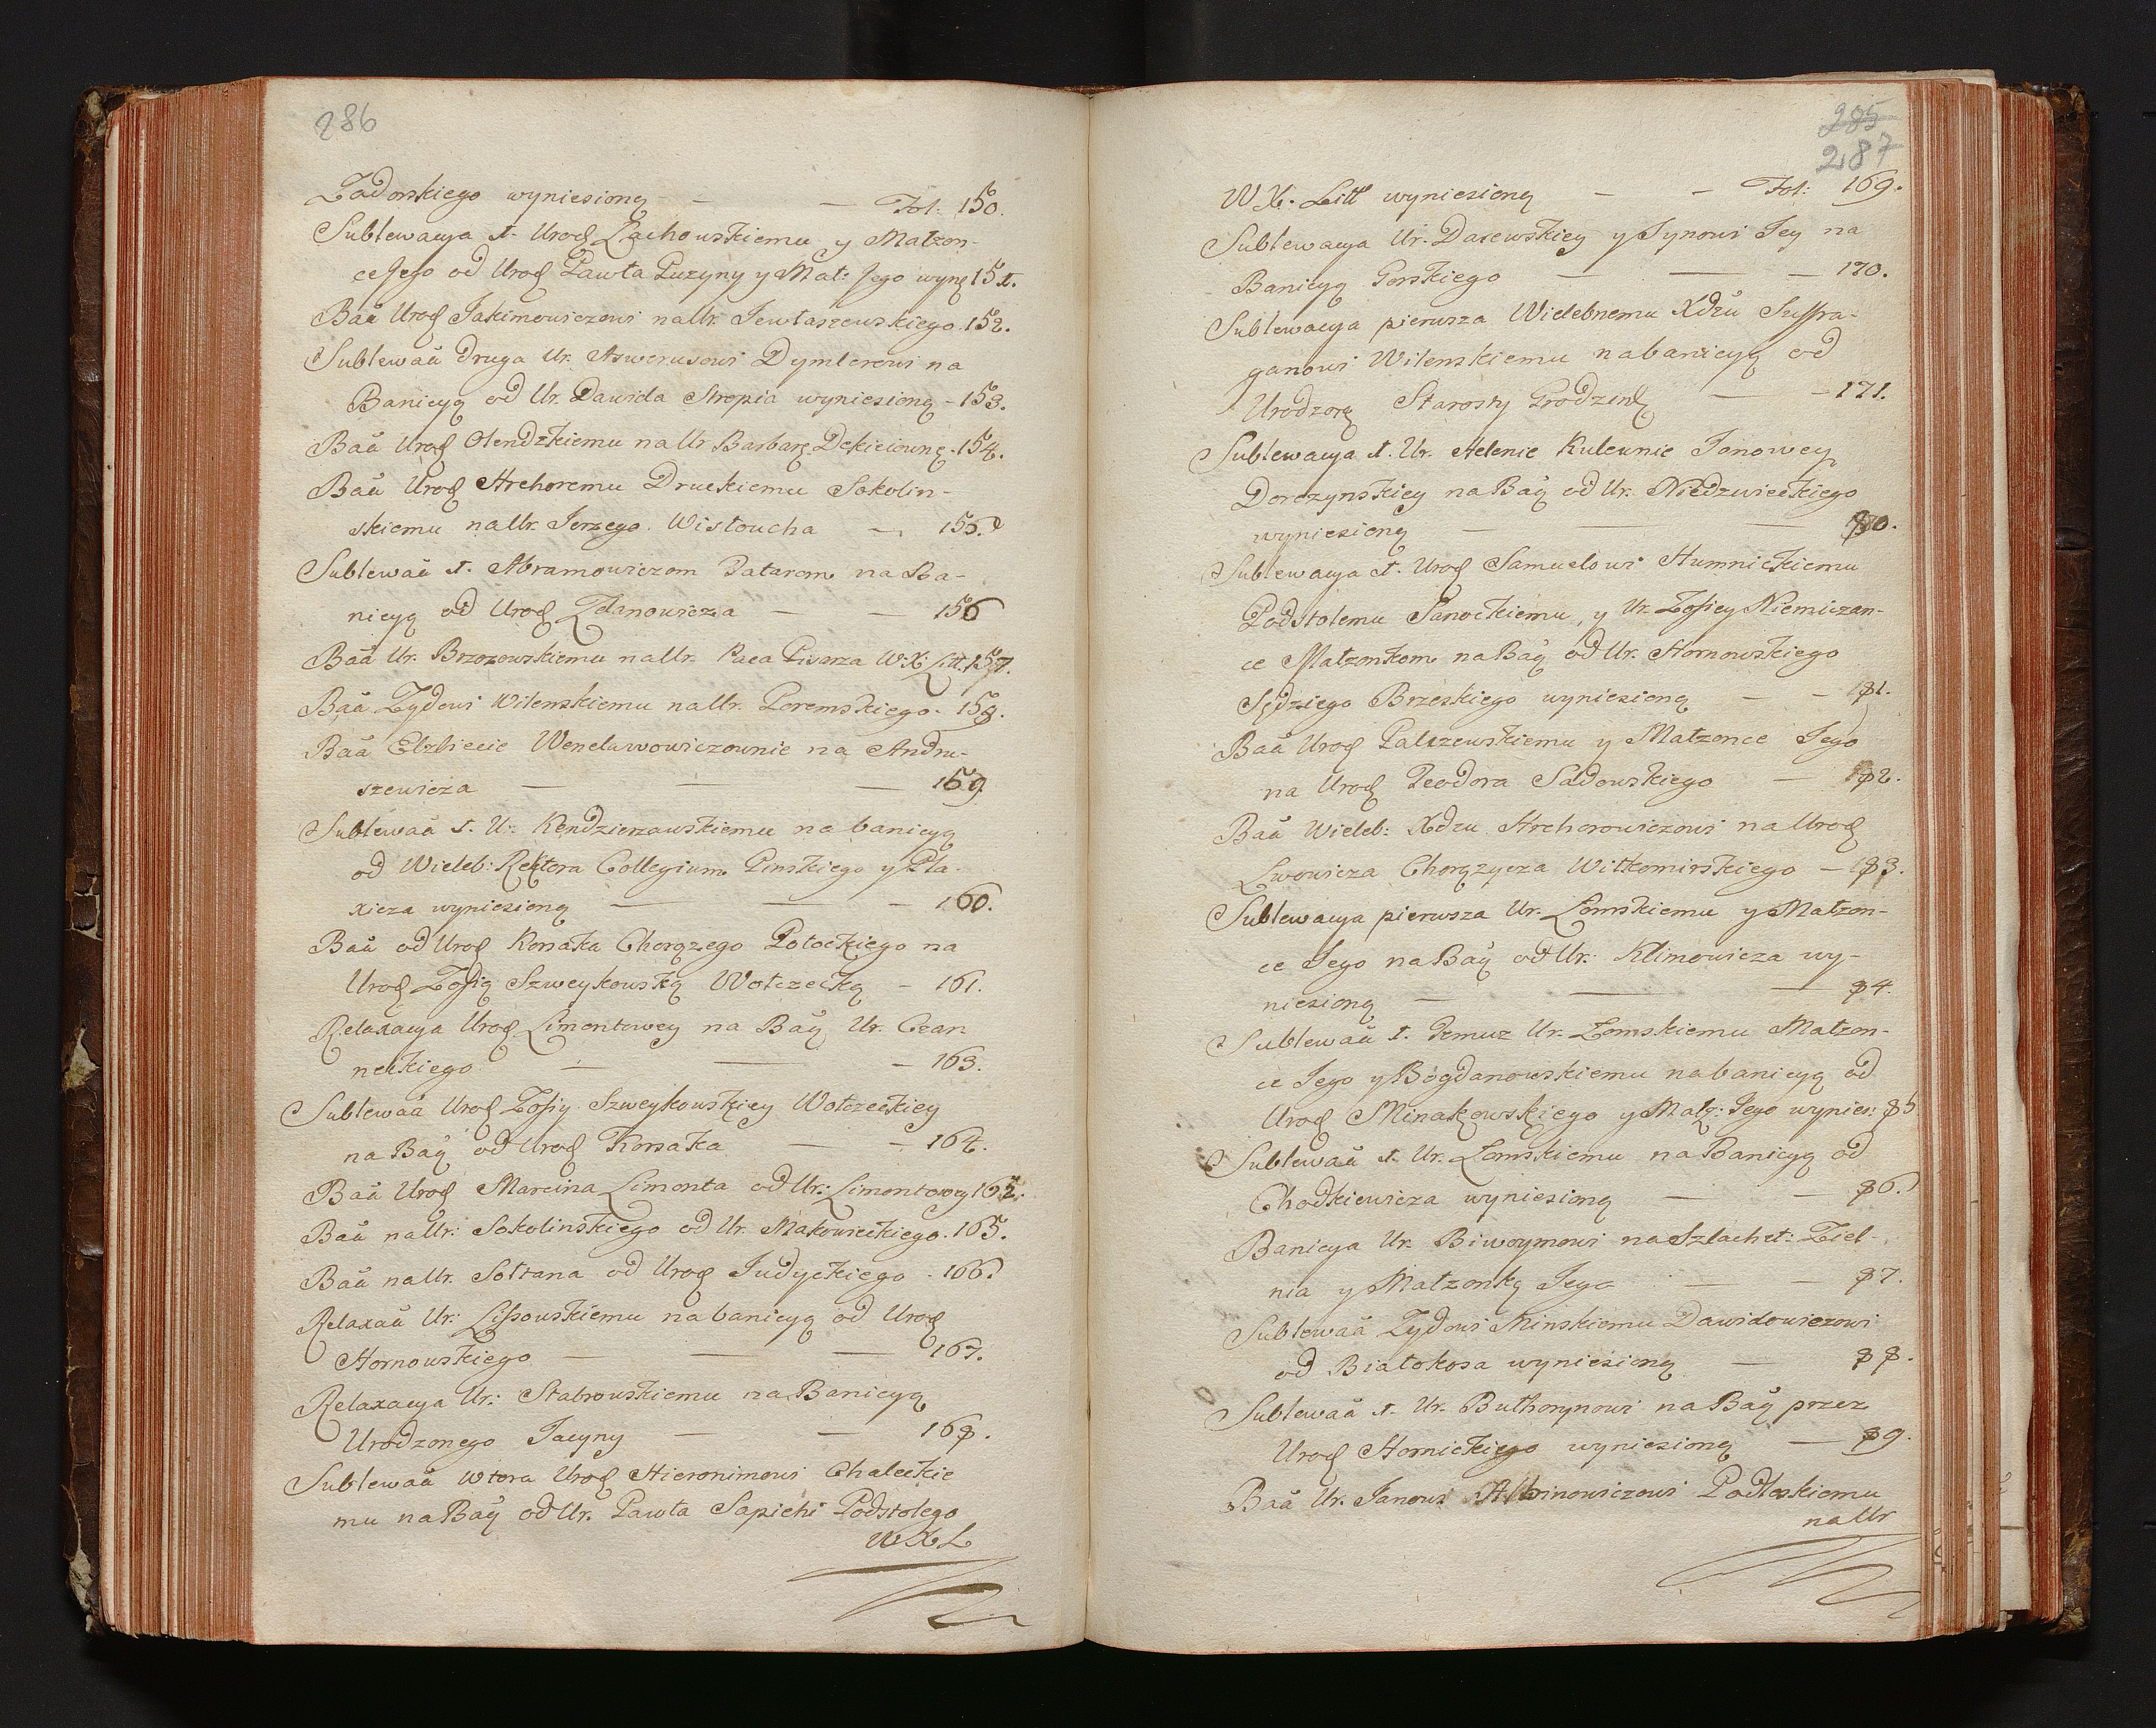 286
Zadorskiego wyniesioną — — Fol: 150.
Sublewacya 1. Urod Lachowskiemu y Małzon-
ce Jego od Urod Pawła Puzyny y Mał: Jego wynę 151.
Baä Urod Jakimowiczowi na Ur. Jewłaszewskiego. 152.
Sublewaä druga Ur. Aswerusowi Dymlerowi na
Banicyą od Ur. Dawida Stropia wyniesioną - 153.
Baä Urod Olendzkiemu na Ur Barbarę Dekieiowną - 154.
Baä Urod Hrehoremu Druckiemu Sokolin-
skiemu na Ur. Jerzego Wisłoucha — 155.
Sublewaä 1. Abramowiczom Tatarom na Ba-
nicyą od Urod Zdanowicza — — 156
Baä Ur. Brzozowskiemu na Ur. Paca Pisarza W. X. Litt. 157.
Baä Zydowi Wilenskiemu na Ur. Poremskiego. 158.
Baä Elzbiecie Wencławowiczownie na Andru-
szewicza — — — 159
Sublewaä 1. Ur. Kendzierzawskiemu na banicyą
od Wieleb: Rektora Collegium Pinskiego y Pla-
xicza wyniesioną — — — 160.
Baä od Urod Korsaka Chorązego Połockiego na
Urod Zofią Szweykowską Wołczecką — 161.
Relaxacya Urod Limontowey na Baą Ur. Cean
neckiego — — — 163.
Sublewaä Urod Zofiy Szweykowskiey Wołczeckiey
na Baą od Urod Korsaka — — 164.
Baä Urod Marcina Limonta od Ur: Limontowey 162.
Baä na Ur: Sokolinskiego od Ur. Makowieckiego. 165.
Baä na Ur. Sołtana od Urod Judyckiego - 166.
Relaxaä Ur: Lissowskiemu na banicyą od Urod
Hornowskiego — — — 167.
Relaxacya Ur: Stabrowskiemu na Banicyą
Urodzonego Jacyny — — 168.
Sublewaä wtora Urod Hieronimowi Chaleckie
mu na Baą od Ur. Pawła Sapiehi Podstolego
W X L
285
287
W X. Litt wyniesioną — — Fol: 169.
Sublewacya Ur. Darewskiey y Synowi Jey na
Banicyą Gorskiego — — — 170.
Sublewacya pierwsza Wielebnemu Xdzu Suffra-
ganowi Wilenskiemu na banicyą od
Urodzoną Starosty Grodzenę — — 171.
Sublewacya 1. Ur. Helenie Kulewnie Janowey
Dorczynskiey na Baą od Ur. Niedzwieckiego
wyniesioną — — — 80.
Sublewacya 1. Urod Samuelowi Humnickiemu
Podstolemu Sanockiemu, y Ur. Zofiey Niemiczan-
ce Małzonkom na Baą od Ur. Hornowskiego
Sędziego Brzeskiego wyniesioną — — 181.
Baä Urod Palszewskiemu y Małzonce Jego
na Urod Teodora Sadowskiego — 182.
Baä Wieleb: Xdzu Hrehorowiczowi na Urod
Lwowicza Chorązycza Wiłkomirskiego — 183.
Sublewacya pierwsza Ur. Łomskiemu y Małzon-
ce Jego na Baą od Ur: Klimowicza wy-
niesioną — — — 84.
Sublewaä 1. Temuz Ur. Łomskiemu Małzon-
ce Jego y Bogdanowskiemu na banicyą od
Urod Minakowskiego y Małz: Jego wynies: 85
Sublewaä 1. Ur. Łomskiemu na Banicyą od
Chodkiewicza wyniesioną — — 86.
Banicya Ur. Biwoynowi na Szlachet: Ziel-
nia y Małzonkę Jego — — 87.
Sublewaä Zydowi Minskiemu Dawidowiczowi
od Białokosa wyniesioną — 88.
Sublewaä 1. Ur. Buthorynowi na Baą przez
Urod Hornickiego wyniesioną — 89.
Baä Ur. Janowi Albinowiczowi Podleskiemu
na Ur